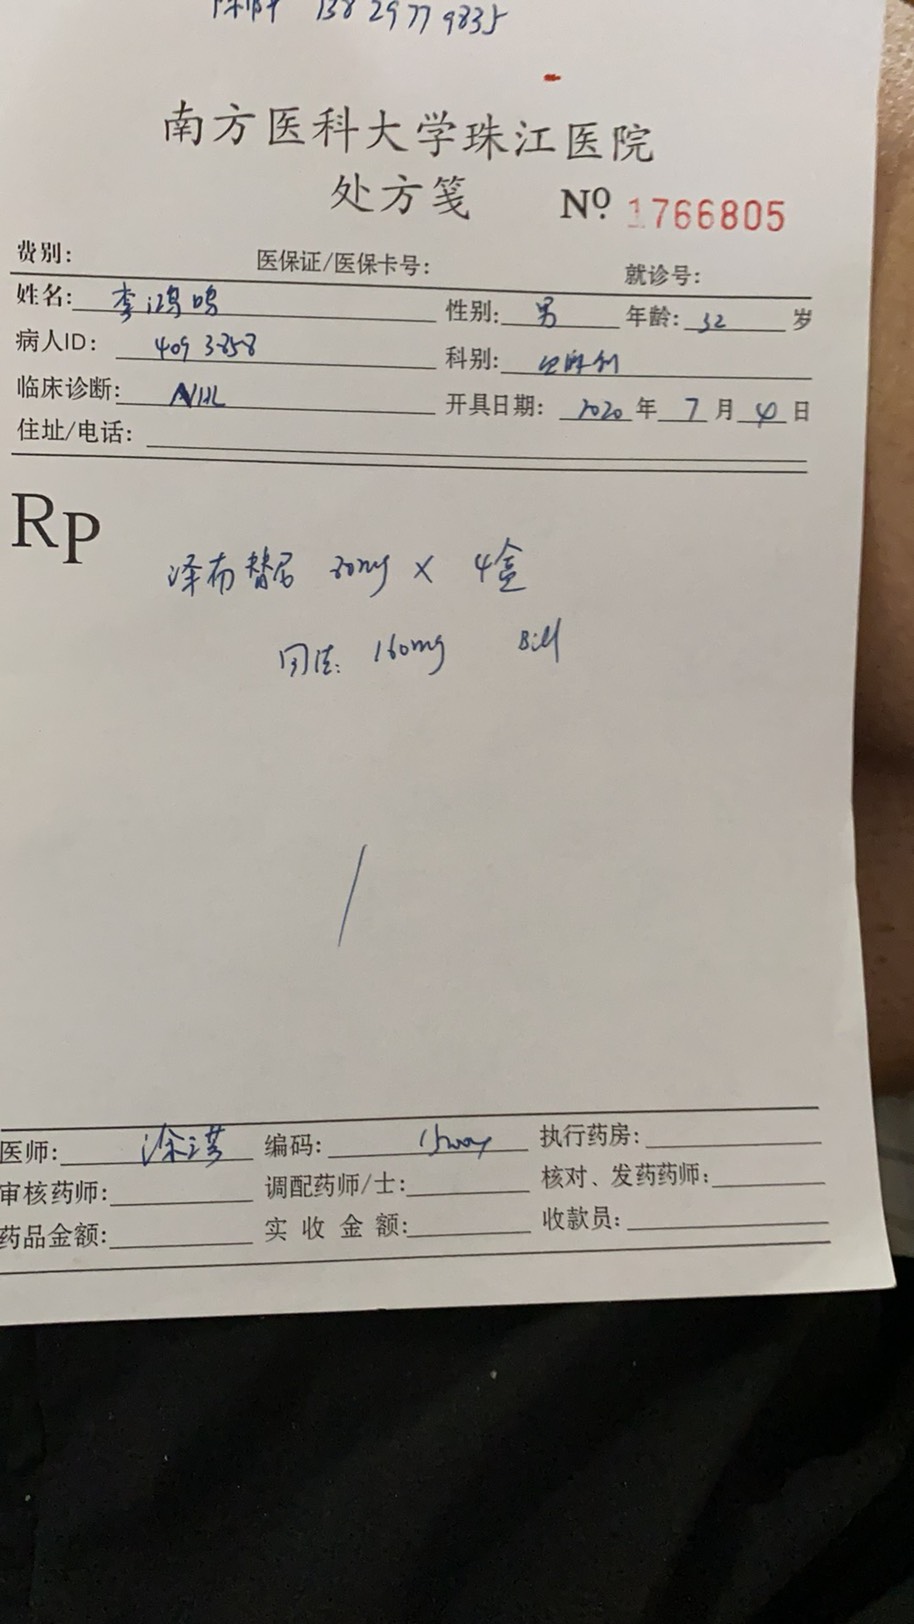 13829779835
南方医科大学珠江医院
处方笺 Nº 1766805
费别: 医保证/医保卡号: 就诊号:
姓名: 李鸿鸣 性别: 男 年龄: 32 岁
病人ID: 4093858 科别:
临床诊断: NHL 开具日期: 2020 年 7 月 4 日
住址/电话:
Rp
泽布替尼 80mg × 4盒
用法: 160mg Bid
医师: 涂 编码: 执行药房:
审核药师: 调配药师/士: 核对、发药药师:
药品金额: 实收金额: 收款员: